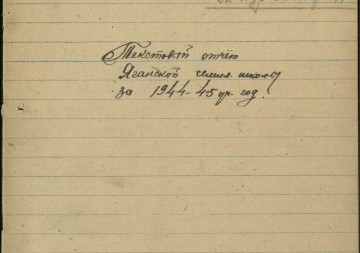 Текстовой отчёт
Яганской школы
за 1944-45 уч. год.